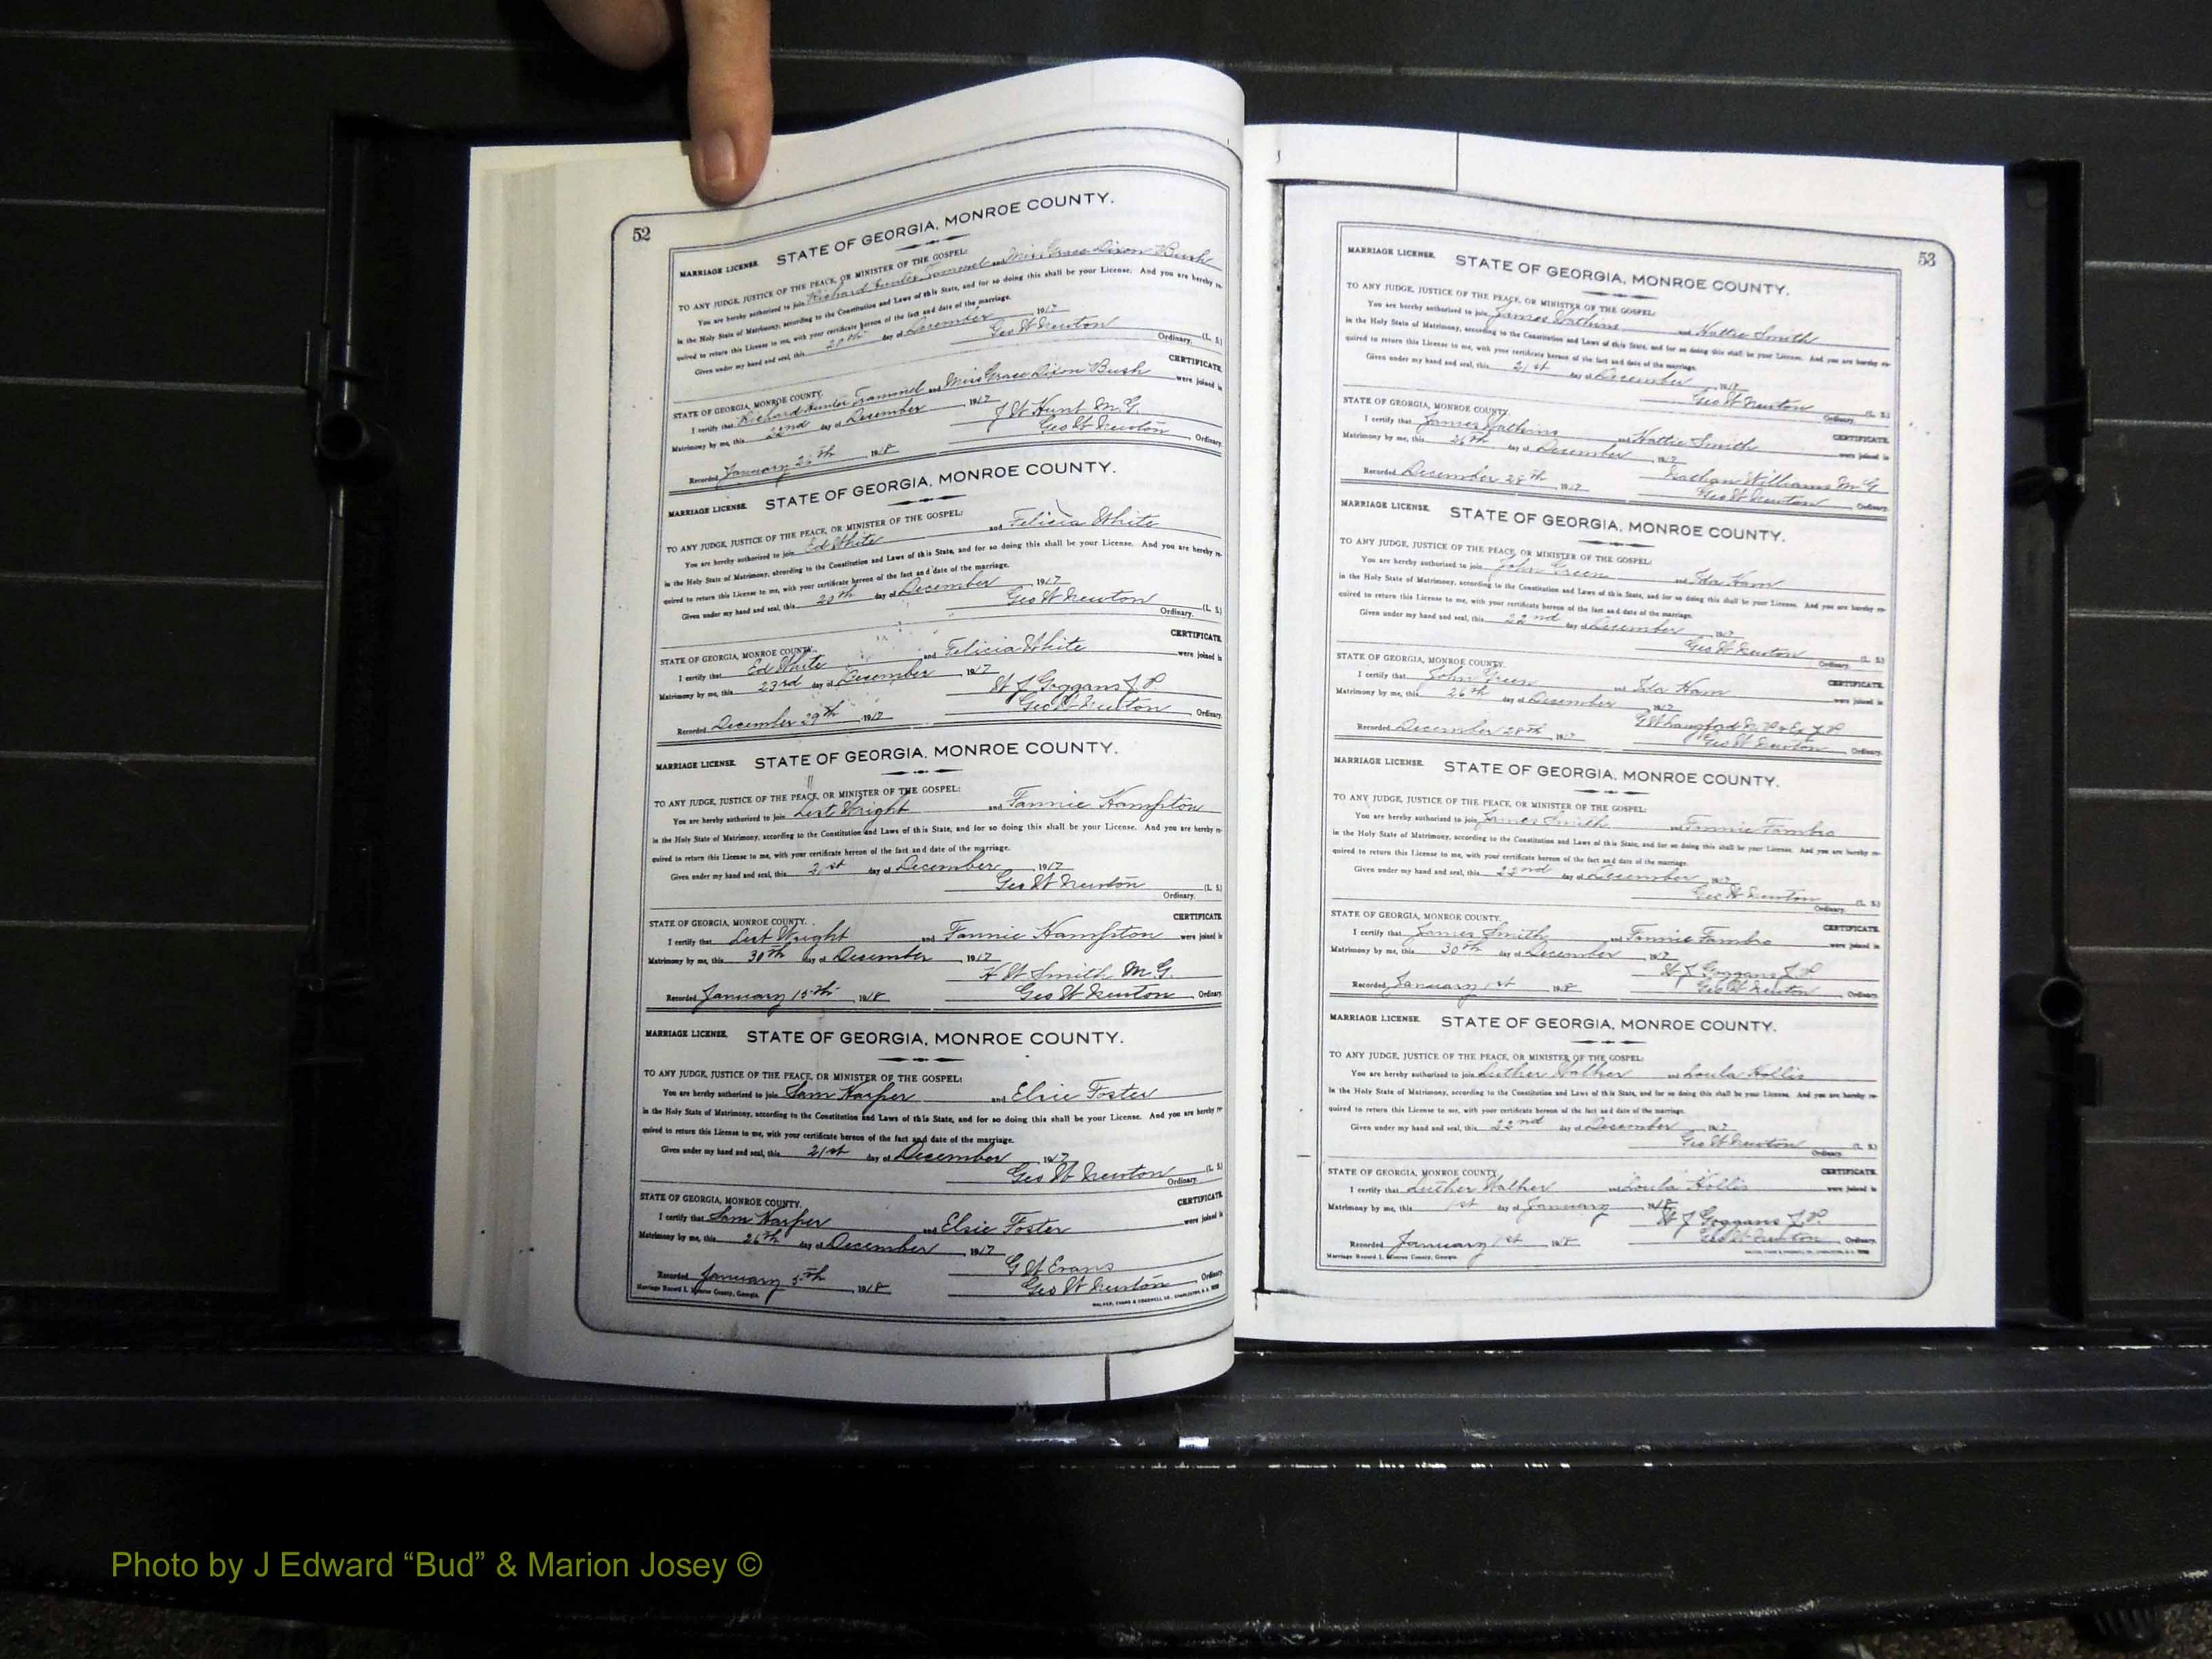 52
MARRIAGE LICENSE. STATE OF GEORGIA, MONROE COUNTY.
TO ANY JUDGE, JUSTICE OF THE PEACE, OR MINISTER OF THE GOSPEL:
You are hereby authorized to join Richard Hunter Trammel and Miss Grace Dixon Bush
in the Holy State of Matrimony, according to the Constitution and Laws of this State, and for so doing this shall be your License. And you are hereby re-
quired to return this License to me, with your certificate hereon of the fact and date of the marriage.
Given under my hand and seal, this 20th day of December 1917
Geo W Newton (L. S.)
Ordinary.
CERTIFICATE
STATE OF GEORGIA, MONROE COUNTY.
I certify that Richard Hunter Trammel and Miss Grace Dixon Bush were joined in
Matrimony by me, this 22nd day of December 1917
J W Hunt M.G.
Recorded January 1918 Geo W Newton, Ordinary
MARRIAGE LICENSE. STATE OF GEORGIA, MONROE COUNTY.
TO ANY JUDGE, JUSTICE OF THE PEACE, OR MINISTER OF THE GOSPEL:
You are hereby authorized to join Ed White and Felicia White
in the Holy State of Matrimony, according to the Constitution and Laws of this State, and for so doing this shall be your License. And you are hereby re-
quired to return this License to me, with your certificate hereon of the fact and date of the marriage.
Given under my hand and seal, this 20th day of December 1917
Geo W Newton (L. S.)
Ordinary.
CERTIFICATE
STATE OF GEORGIA, MONROE COUNTY.
I certify that Ed White and Felicia White were joined in
Matrimony by me, this 23rd day of December, 1917
W J Goggans J. P
Recorded December 29th, 1917 Geo W Newton, Ordinary.
MARRIAGE LICENSE. STATE OF GEORGIA, MONROE COUNTY.
TO ANY JUDGE, JUSTICE OF THE PEACE, OR MINISTER OF THE GOSPEL:
You are hereby authorized to join Wright and Fannie Hampton
in the Holy State of Matrimony, according to the Constitution and Laws of this State, and for so doing this shall be your License. And you are hereby re-
quired to return this License to me, with your certificate hereon of the fact and date of the marriage.
Given under my hand and seal, this 21st day of December, 1917
Geo W Newton (L. S.)
Ordinary.
CERTIFICATE
STATE OF GEORGIA, MONROE COUNTY.
I certify that Wright and Fannie Hampton were joined in
Matrimony by me, this 30th day of December, 1917
H W Smith M.G.
Recorded January 15th, 1918 Geo W Newton, Ordinary
MARRIAGE LICENSE. STATE OF GEORGIA, MONROE COUNTY.
TO ANY JUDGE, JUSTICE OF THE PEACE, OR MINISTER OF THE GOSPEL:
You are hereby authorized to join Sam Harper and Elsie Foster
in the Holy State of Matrimony, according to the Constitution and Laws of this State, and for so doing this shall be your License. And you are hereby re-
quired to return this License to me, with your certificate hereon of the fact and date of the marriage.
Given under my hand and seal, this 21st day of December, 1917
Geo W Newton (L. S.)
Ordinary.
CERTIFICATE
STATE OF GEORGIA, MONROE COUNTY.
I certify that Sam Harper and Elsie Foster were joined in
Matrimony by me, this 26th day of December, 1917
G W Evans
Recorded January 5th, 1918 Geo W Newton, Ordinary.
Marriage Record L Monroe County, Georgia.
53
MARRIAGE LICENSE. STATE OF GEORGIA, MONROE COUNTY.
TO ANY JUDGE, JUSTICE OF THE PEACE, OR MINISTER OF THE GOSPEL:
You are hereby authorized to join James Watkins and Hattie Smith
in the Holy State of Matrimony, according to the Constitution and Laws of this State, and for so doing this shall be your License. And you are hereby re-
quired to return this License to me, with your certificate hereon of the fact and date of the marriage.
Given under my hand and seal, this 21st day of December, 1917
Geo W Newton (L. S.)
Ordinary.
STATE OF GEORGIA, MONROE COUNTY. CERTIFICATE
I certify that James Watkins and Hattie Smith were joined in
Matrimony by me, this 26th day of December, 1917
Nathan Williams M G
Recorded December 28th, 1917 Geo W Newton, Ordinary.
MARRIAGE LICENSE. STATE OF GEORGIA, MONROE COUNTY.
TO ANY JUDGE, JUSTICE OF THE PEACE, OR MINISTER OF THE GOSPEL:
You are hereby authorized to join John Green and Ida Ham
in the Holy State of Matrimony, according to the Constitution and Laws of this State, and for so doing this shall be your License. And you are hereby re-
quired to return this License to me, with your certificate hereon of the fact and date of the marriage.
Given under my hand and seal, this 22nd day of December, 1917
Geo W Newton (L. S.)
Ordinary.
STATE OF GEORGIA, MONROE COUNTY. CERTIFICATE
I certify that John Green and Ida Ham were joined in
Matrimony by me, this 26th day of December, 1917
G W Langford J P
Recorded December 28th, 1917 Geo W Newton, Ordinary.
MARRIAGE LICENSE. STATE OF GEORGIA, MONROE COUNTY.
TO ANY JUDGE, JUSTICE OF THE PEACE, OR MINISTER OF THE GOSPEL:
You are hereby authorized to join James Smith and Fannie Fambro
in the Holy State of Matrimony, according to the Constitution and Laws of this State, and for so doing this shall be your License. And you are hereby re-
quired to return this License to me, with your certificate hereon of the fact and date of the marriage.
Given under my hand and seal, this 22nd day of December, 1917
Geo W Newton (L. S.)
Ordinary.
STATE OF GEORGIA, MONROE COUNTY. CERTIFICATE
I certify that James Smith and Fannie Fambro were joined in
Matrimony by me, this 30th day of December, 1917
W J Goggans J. P
Recorded January 1st 1918 Geo W Newton, Ordinary.
MARRIAGE LICENSE. STATE OF GEORGIA, MONROE COUNTY.
TO ANY JUDGE, JUSTICE OF THE PEACE, OR MINISTER OF THE GOSPEL:
You are hereby authorized to join Luther Walker and Loula Hollis
in the Holy State of Matrimony, according to the Constitution and Laws of this State, and for so doing this shall be your License. And you are hereby re-
quired to return this License to me, with your certificate hereon of the fact and date of the marriage.
Given under my hand and seal, this 22nd day of December, 1917
Geo W Newton (L. S.)
Ordinary.
STATE OF GEORGIA, MONROE COUNTY. CERTIFICATE
I certify that Luther Walker and Loula Hollis were joined in
Matrimony by me, this 1st day of January, 1918
W J Goggans J. P.
Recorded January 1st 1918 Geo W Newton, Ordinary.
Marriage Record L Monroe County, Georgia.
Photo by J Edward “Bud” & Marion Josey ©